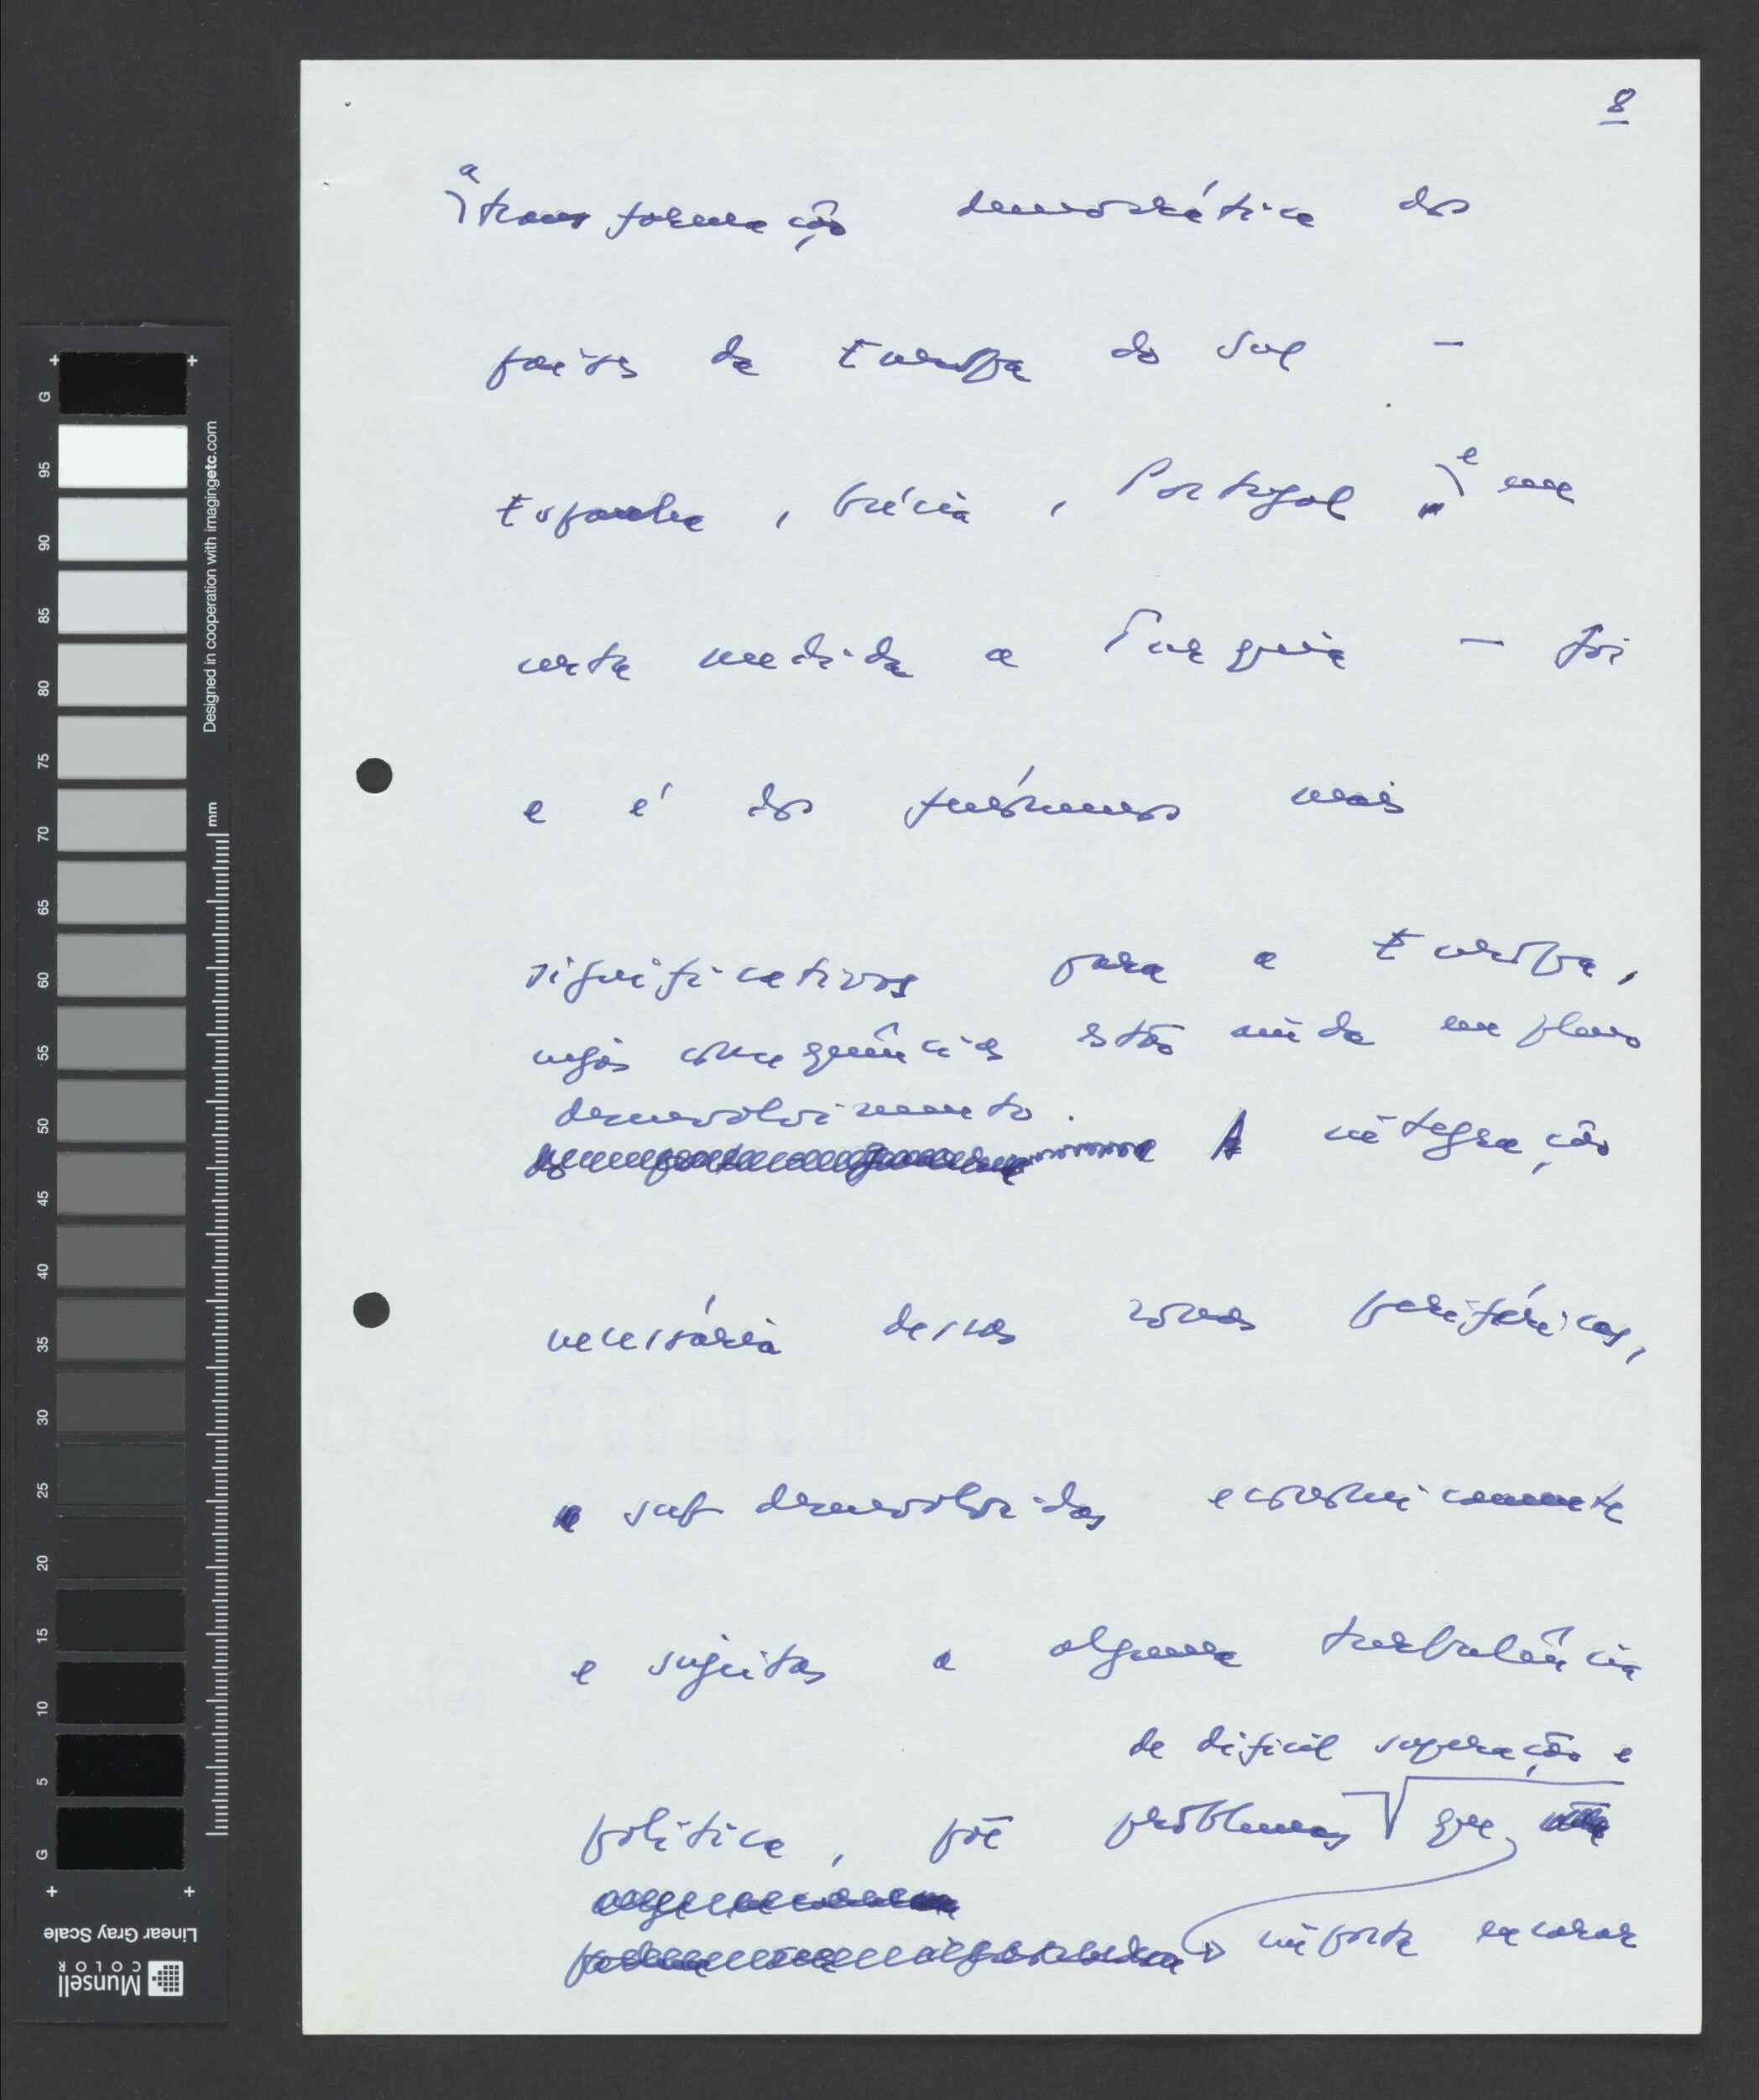 8
a
transformação democrática dos
países da Europa do Sul —
Espanha, Grécia, Portugal, e em
certa medida a Turquia — foi
e é dos fenómenos mais
significativos para a Europa,
cujas consequências estão ainda em pleno
desenvolvimento.
A integração
necessária dessas zonas periféricas,
sub desenvolvidas economicamente
e sujeitas a alguma turbulência
de difícil superação e
política, põe problemas que
importa encarar
G
95
90
85
80
75
70
65
60
55
50
45
40
35
30
25
20
15
10
5
G
Designed in cooperation with imagingetc.com
mm
Linear Gray Scale
Munsell
COLOR